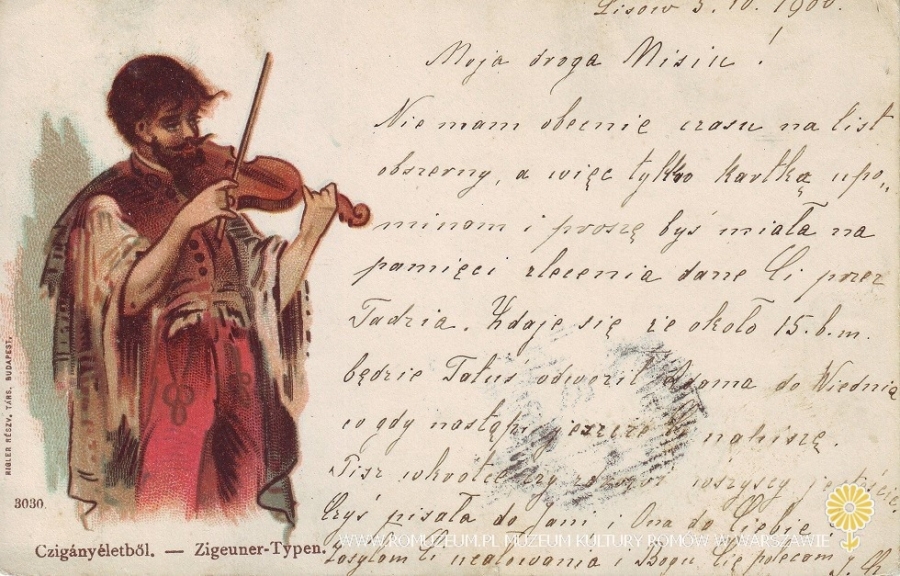 Lisów 5. 10. 1900.
Moja droga Misiu!
Nie mam obecnie czasu na list
obszerny, a więc tylko kartką upo„
minam i proszę byś miała na
pamięci zlecenia dane Ci przez
Tadzia. Zdaje się że około 15. b. m.
będzie Tatuś odwoził do Wiednia
co gdy nastąpi jeszcze napiszę.
Pisz wkrótce czy wszyscy
Czyś pisała do Jani i Ona do Ciebie
Posyłam Ci ucałowania i Bogu Cię polecam
RIGLER RÉSZV. TÁRS. BUDAPEST.
3030
Czigányéletből. — Zigeuner-Typen.
WWW.ROMUZEUM.PL MUZEUM KULTURY ROMÓW W WARSZAWIE